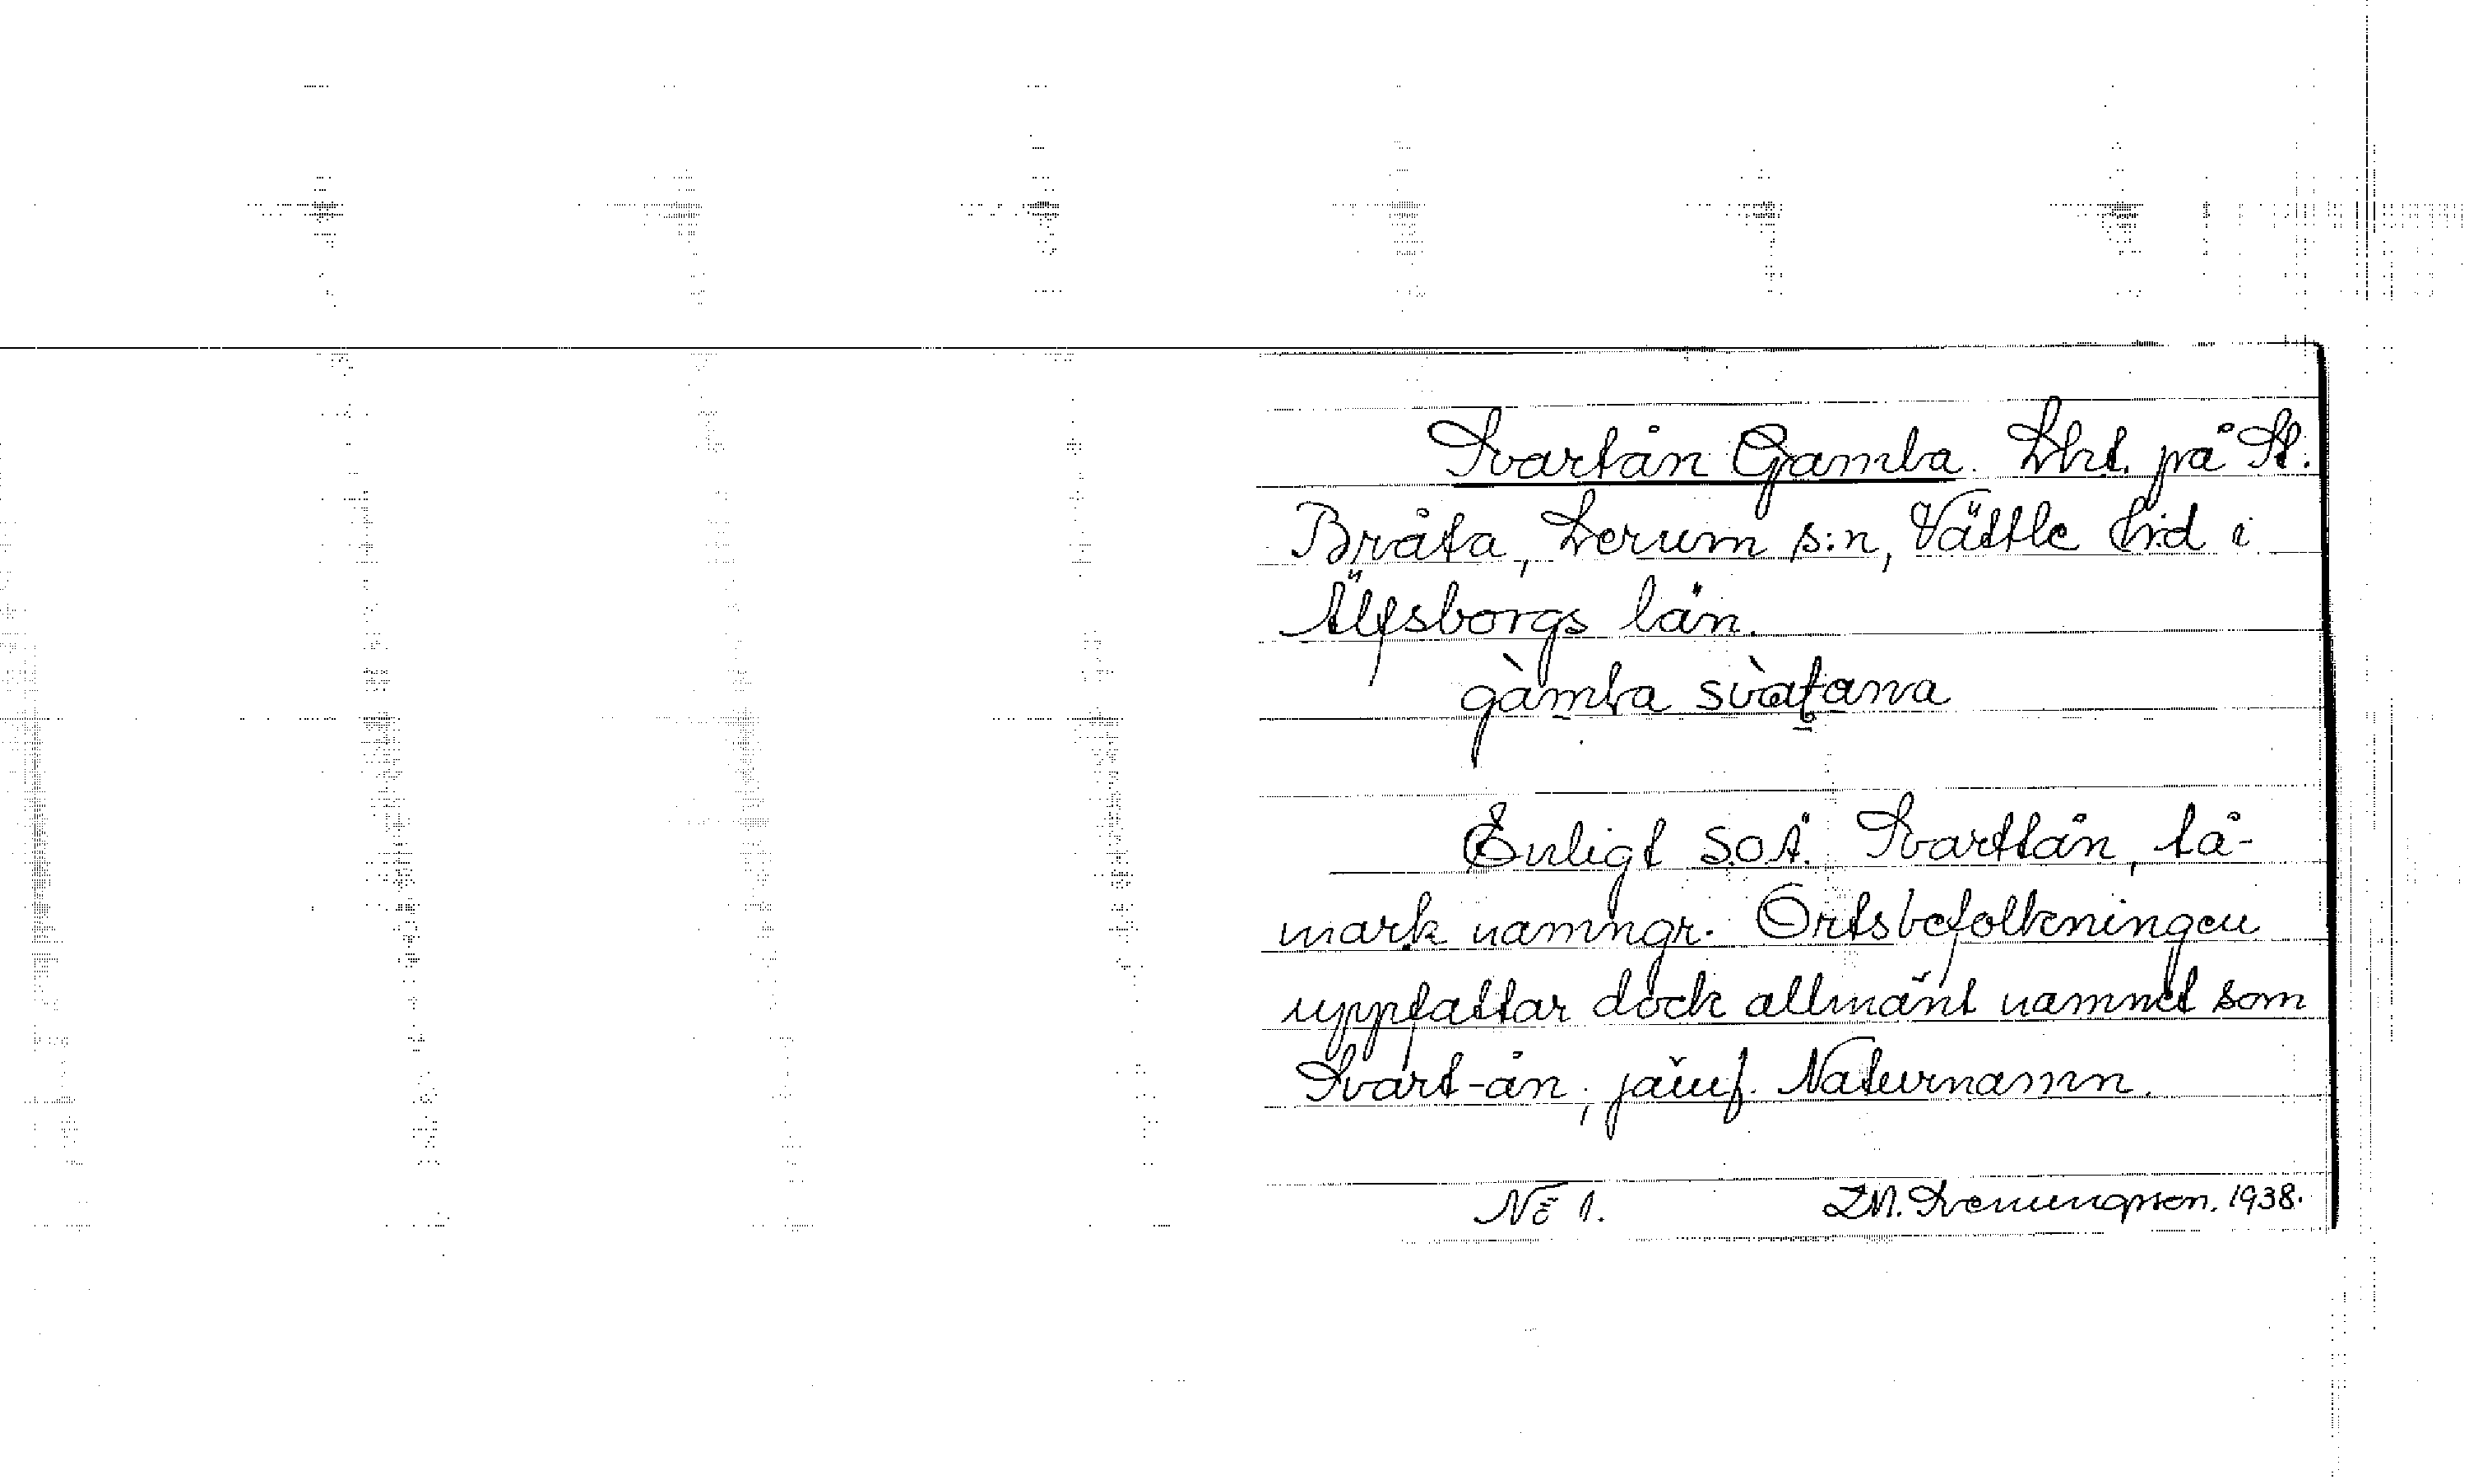 Svartån Gamla. Lht. på St.
Bråta, Lerum s:n, Vättle hrd i
Älfsborgs län.
gàmla svàtana
Enligt S.O.Ä. Svarttån, tå-
mark namngr. Ortsbefolkningen
uppfattar dock allmänt namnet som
Svart-ån; jämf. Naturnamn.
No 1. 1938.